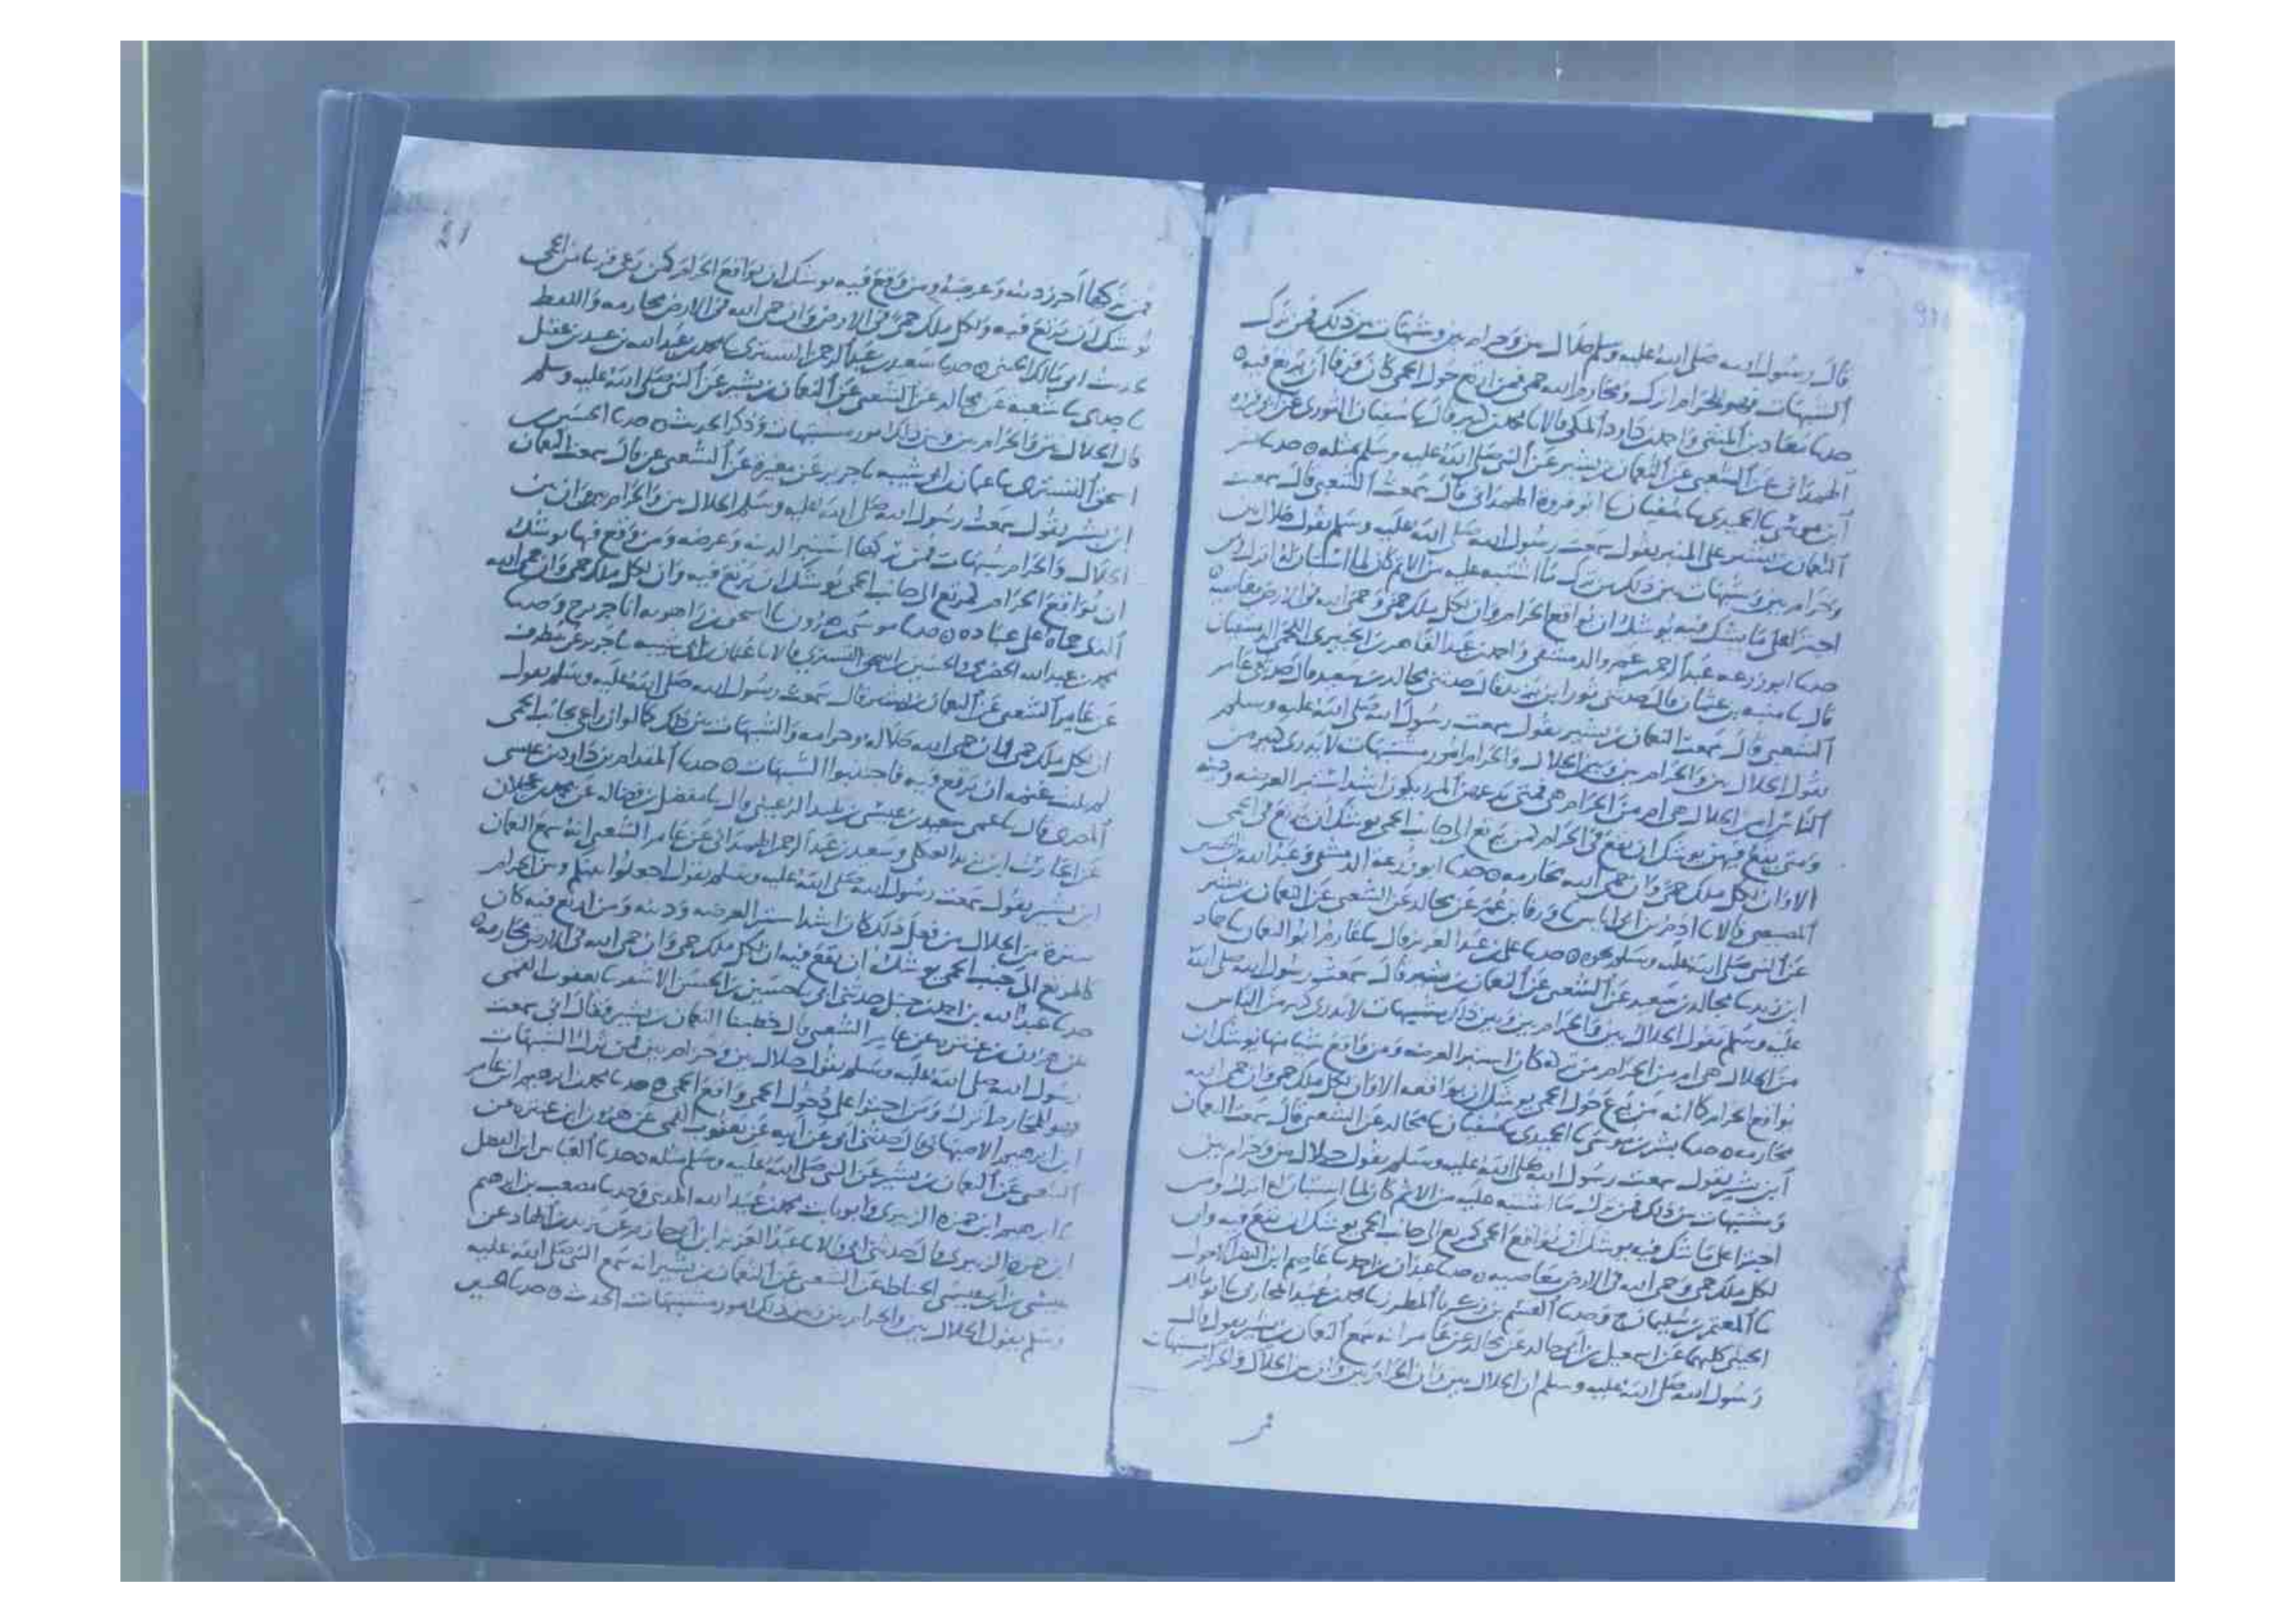 قال رسول الله صلى الله عليه وسلم حلال بين وحرام بين وشبهات بين ذلك فمن ترك
الشبهات فهو للحرام اترك ومحارم الله حمى فمن ارتع حول الحمى كان قمنا ان يرتع فيه
حدثنا معاذ بن المثنى واحمد بن داود المكي قالا نا محمد بن كثير قال نا سفيان الثوري عن ابي فروة
الهمداني عن الشعبي عن النعمان بن بشير عن النبي صلى الله عليه وسلم مثله حدثنا بشر
ابن موسى نا الحميدي نا سفيان نا ابو فروة الهمداني قال سمعت الشعبي قال سمعت
النعمان بن بشير على المنبر يقول سمعت رسول الله صلى الله عليه وسلم يقول حلال بين
وحرام بين وشبهات بين ذلك من ترك ما اشتبه عليه من الاثم كان لما استبان له اترك ومن
اجترا على ما يشك فيه يوشك ان يواقع الحرام وان لكل ملك حمى وحمى الله في الارض معاصيه
حدثنا ابو زرعة عبد الرحمن بن عمرو الدمشقي واحمد بن عبد القاهر بن الخيبري اللخمي الدمشقيان
قال نا منبه بن عثمان قال حدثني ثور ابن يزيد قال حدثني مجالد بن سعيد قال حدثني عامر
الشعبي قال سمعت النعمان بن بشير يقول سمعت رسول الله صلى الله عليه وسلم
يقول الحلال بين والحرام بين وبين الحلال والحرام امور مشتبهات لا يدري كثير من
الناس امن الحلال هي ام من الحرام هي فمن يدعهن المرء يكون اشد استبراء لعرضه ودينه
ومتى يقع فيهن يوشك ان يقع في الحرام كمن يرتع الى جانب الحمى يوشك ان يرتع في الحمى
الا وان لكل ملك حمى وان حمى الله محارمه حدثنا ابو زرعة الدمشقي وعبد الله بن الحسين
المصيصي قالا نا ادم بن ابي اياس نا ورقا بن عمر عن مجالد عن الشعبي عن النعمان بن بشير
عن النبي صلى الله عليه وسلم نحوه حدثنا علي بن عبد العزيز قال نا عارم ابو النعمان نا حماد
ابن زيد نا مجالد بن سعيد عن الشعبي عن النعمان بن بشير قال سمعت رسول الله صلى الله
عليه وسلم يقول الحلال بين والحرام بين وبين ذلك مشتبهات لا يدري كثير من الناس
من الحلال هي ام من الحرام من تركه كان استبرا لعرضه ومن واقع شيئا منها يوشك ان
يواقع الحرام كما انه من يرع حول الحمى يوشك ان يواقعه الا وان لكل ملك حمى وان حمى الله
محارمه حدثنا بشر بن موسى نا الحميدي نا سفيان نا مجالد عن الشعبي قال سمعت النعمان
ابن بشير يقول سمعت رسول الله صلى الله عليه وسلم يقول حلال بين وحرام بين
ومشتبهات بين ذلك فمن ترك ما اشتبه عليه من الاثم كان لما استبان له اترك ومن
اجترا على ما شك فيه يوشك ان يواقع الحمى كمرتع الى جانب الحمى يوشك ان يقع فيه وان
لكل ملك حمى وحمى الله في الارض معاصيه حدثنا عبدان بن احمد نا عاصم ابن النضر الاحول
نا المعتمر بن سليمان ح وحدثنا القسم بن زكريا المطرز نا محمد بن عبيد المحاربي نا ابو مالك
الجنبي كلهما عن اسمعيل بن ابي خالد عن مجالد عن عامر انه سمع النعمان بن بشير يقول قال
رسول الله صلى الله عليه وسلم ان الحلال بين وان الحرام بين وان بين الحلال والحرام مشتبهات
فمن
فمن تركها احرز دينه وعرضه ومن وقع فيه يوشك ان يواقع الحرام كمن رعى قريبا من الحمى
يوشك ان يرتع فيه ولكل ملك حمى في الارض وان حمى الله في الارض محارمه واللفظ
لحديث ابي مالك الجنبي حدثنا سعيد بن عبد الرحمن التستري نا محمد بن عبد الله بن عبيد بن عقيل
نا جدي نا شعبة عن مجالد عن الشعبي عن النعمان بن بشير عن النبي صلى الله عليه وسلم
قال الحلال بين والحرام بين وبين ذلك امور مشتبهات وذكر الحديث حدثنا الحسين بن
اسحق التستري نا عثمان بن ابي شيبة نا جرير عن مغيرة عن الشعبي عن قال سمعت النعمان
ابن بشير يقول سمعت رسول الله صلى الله عليه وسلم الحلال بين والحرام بين وان بين
الحلال والحرام شبهات فمن تركها استبرا لدينه وعرضه ومن وقع فيها يوشك
ان يواقع الحرام كمرتع الى جانب الحمى يوشك ان يرتع فيه وان لكل ملك حمى وان حمى الله
الذي حماه على عباده حدثنا موسى بن هرون نا اسحق بن راهويه انا جرير ح وحدثنا
محمد بن عبد الله الحضرمي والحسين بن اسحق التستري قالا نا عثمان بن ابي شيبة نا جرير عن مطرف
عن عامر الشعبي عن النعمان بن بشير قال سمعت رسول الله صلى الله عليه وسلم يقول
ان لكل ملك حمى وان حمى الله حلاله وحرامه والشبهات بين ذلك كما لو ان راعي بجانب الحمى
لم تلبث غنمه ان يرتع فيه فاجتنبوا الشبهات حدثنا المقدام بن داود بن عيسى
المصري قال نا عمي سعيد بن عيسى بن تليد الرعيني قال نا مفضل بن فضالة عن محمد بن عجلان
عن الحارث ابن يزيد العكلي وسعيد بن عبد الرحمن الهمداني عن عامر الشعبي انه سمع النعمان
ابن بشير يقول سمعت رسول الله صلى الله عليه وسلم يقول اجعلوا بينكم وبين الحرام
سترة من الحلال من فعل ذلك كان اشد استبرا لعرضه ودينه ومن ارتع فيه كان
كالمرتع الى جنب الحمى يوشك ان يقع فيه ان لكل ملك حمى وان حمى الله في الارض محارمه
حدثنا عبد الله بن احمد بن حنبل حدثني ابي نا حسين بن الحسن الاشقر نا يعقوب القمي
عن هرون بن عنترة عن عامر الشعبي قال خطبنا النعمان بن بشير فقال اني سمعت
رسول الله صلى الله عليه وسلم يقول حلال بين وحرام بين فمن ترك الشبهات
فهو للمحارم اترك ومن اجترا على دخول الحمى واقع الحمى حدثنا محمد بن ابرهيم ابن عامر
ابن ابرهيم الاصبهاني قال حدثني ابي عن ابيه عن يعقوب القمي عن هرون ابن عنترة عن
الشعبي عن النعمان بن بشير عن النبي صلى الله عليه وسلم مثله حدثنا العباس ابن الفضل
نا ابرهيم ابن حمزة الزبيري وابو ثابت محمد بن عبيد الله المديني وحدثنا مصعب بن ابرهيم
ابن حمزة الزبيري قال حدثني ابي قالا نا عبد العزيز ابن ابي حازم عن يزيد بن الهاد عن
عيسى بن ابي عيسى الحناط عن الشعبي عن النعمان بن بشير انه سمع النبي صلى الله عليه
وسلم يقول الحلال بين والحرام بين وبين ذلك امور مشتبهات الحديث حدثنا الحسين